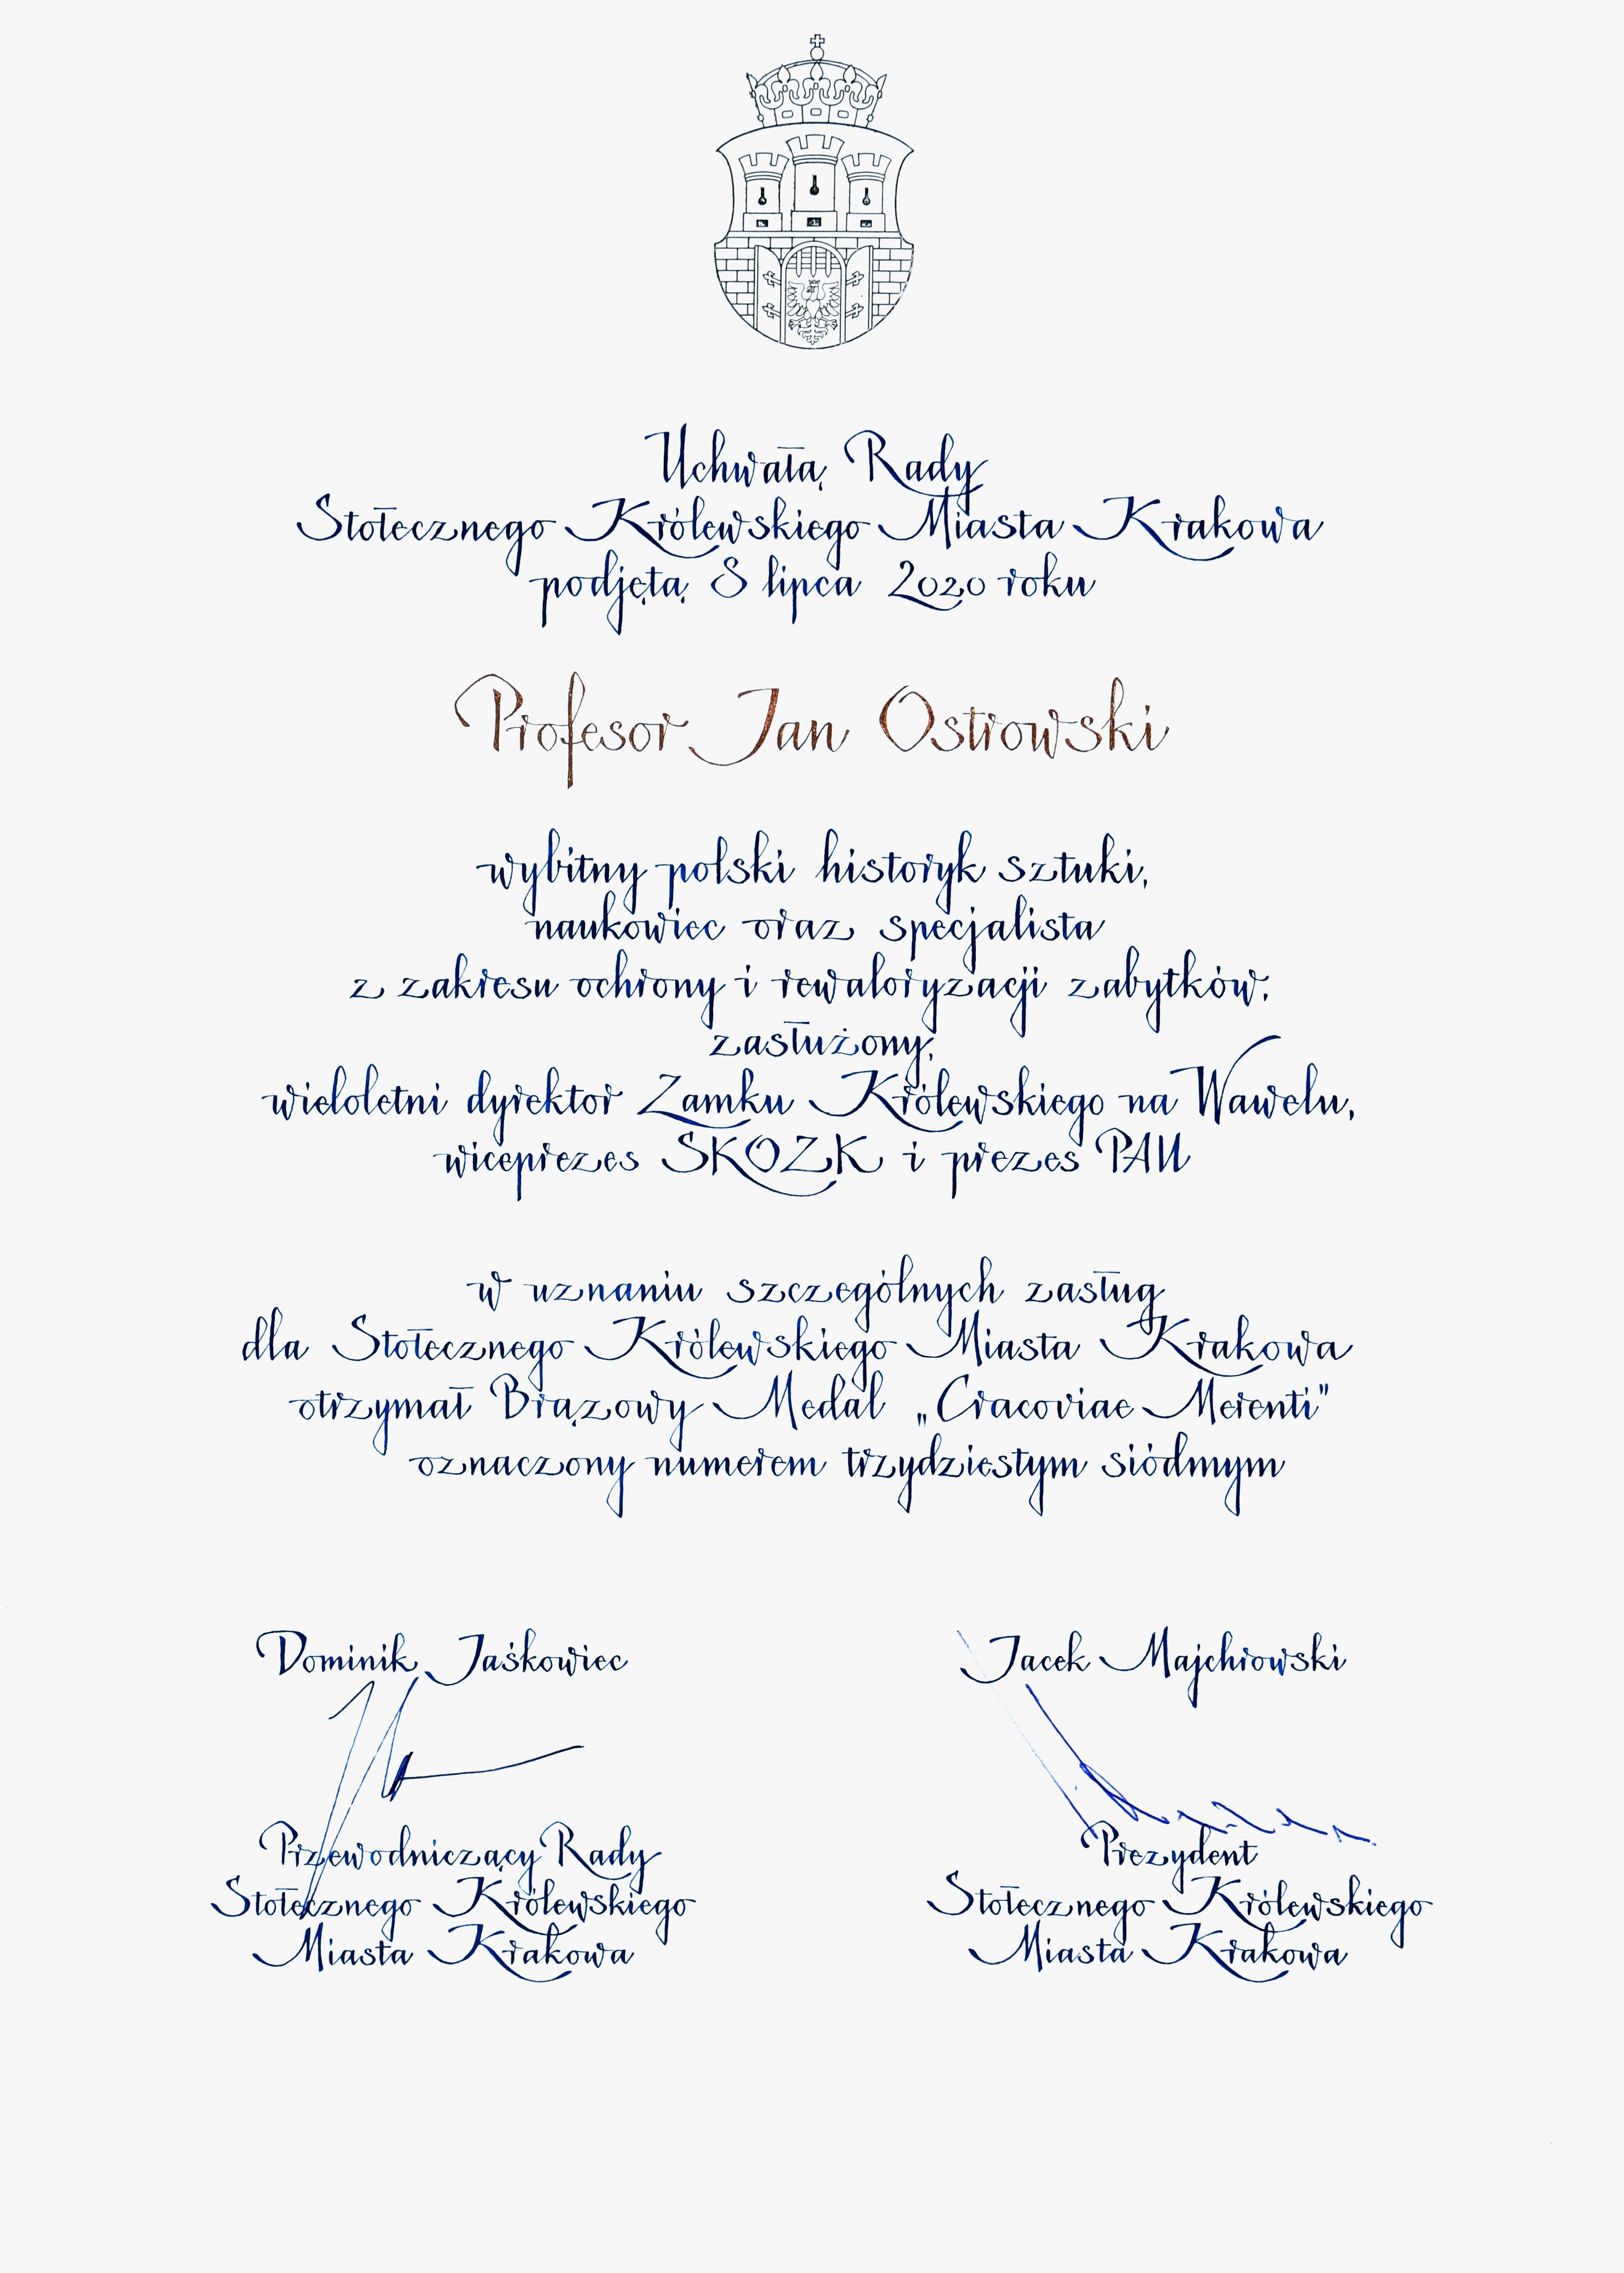 Uchwałą Rady
Stołecznego Królewskiego Miasta Krakowa
podjętą 8 lipca 2020 roku
Profesor Jan Ostrowski
wybitny polski historyk sztuki,
naukowiec oraz specjalista
z zakresu ochrony i rewaloryzacji zabytków,
zasłużony,
wieloletni dyrektor Zamku Królewskiego na Wawelu,
wiceprezes SKOZK i prezes PAU
w uznaniu szczególnych zasług
dla Stołecznego Królewskiego Miasta Krakowa
otrzymał Brązowy Medal „Cracoviae Merenti”
oznaczony numerem trzydziestym siódmym
Dominik Jaśkowiec
Przewodniczący Rady
Stołecznego Królewskiego
Miasta Krakowa
Jacek Majchrowski
Prezydent
Stołecznego Królewskiego
Miasta Krakowa